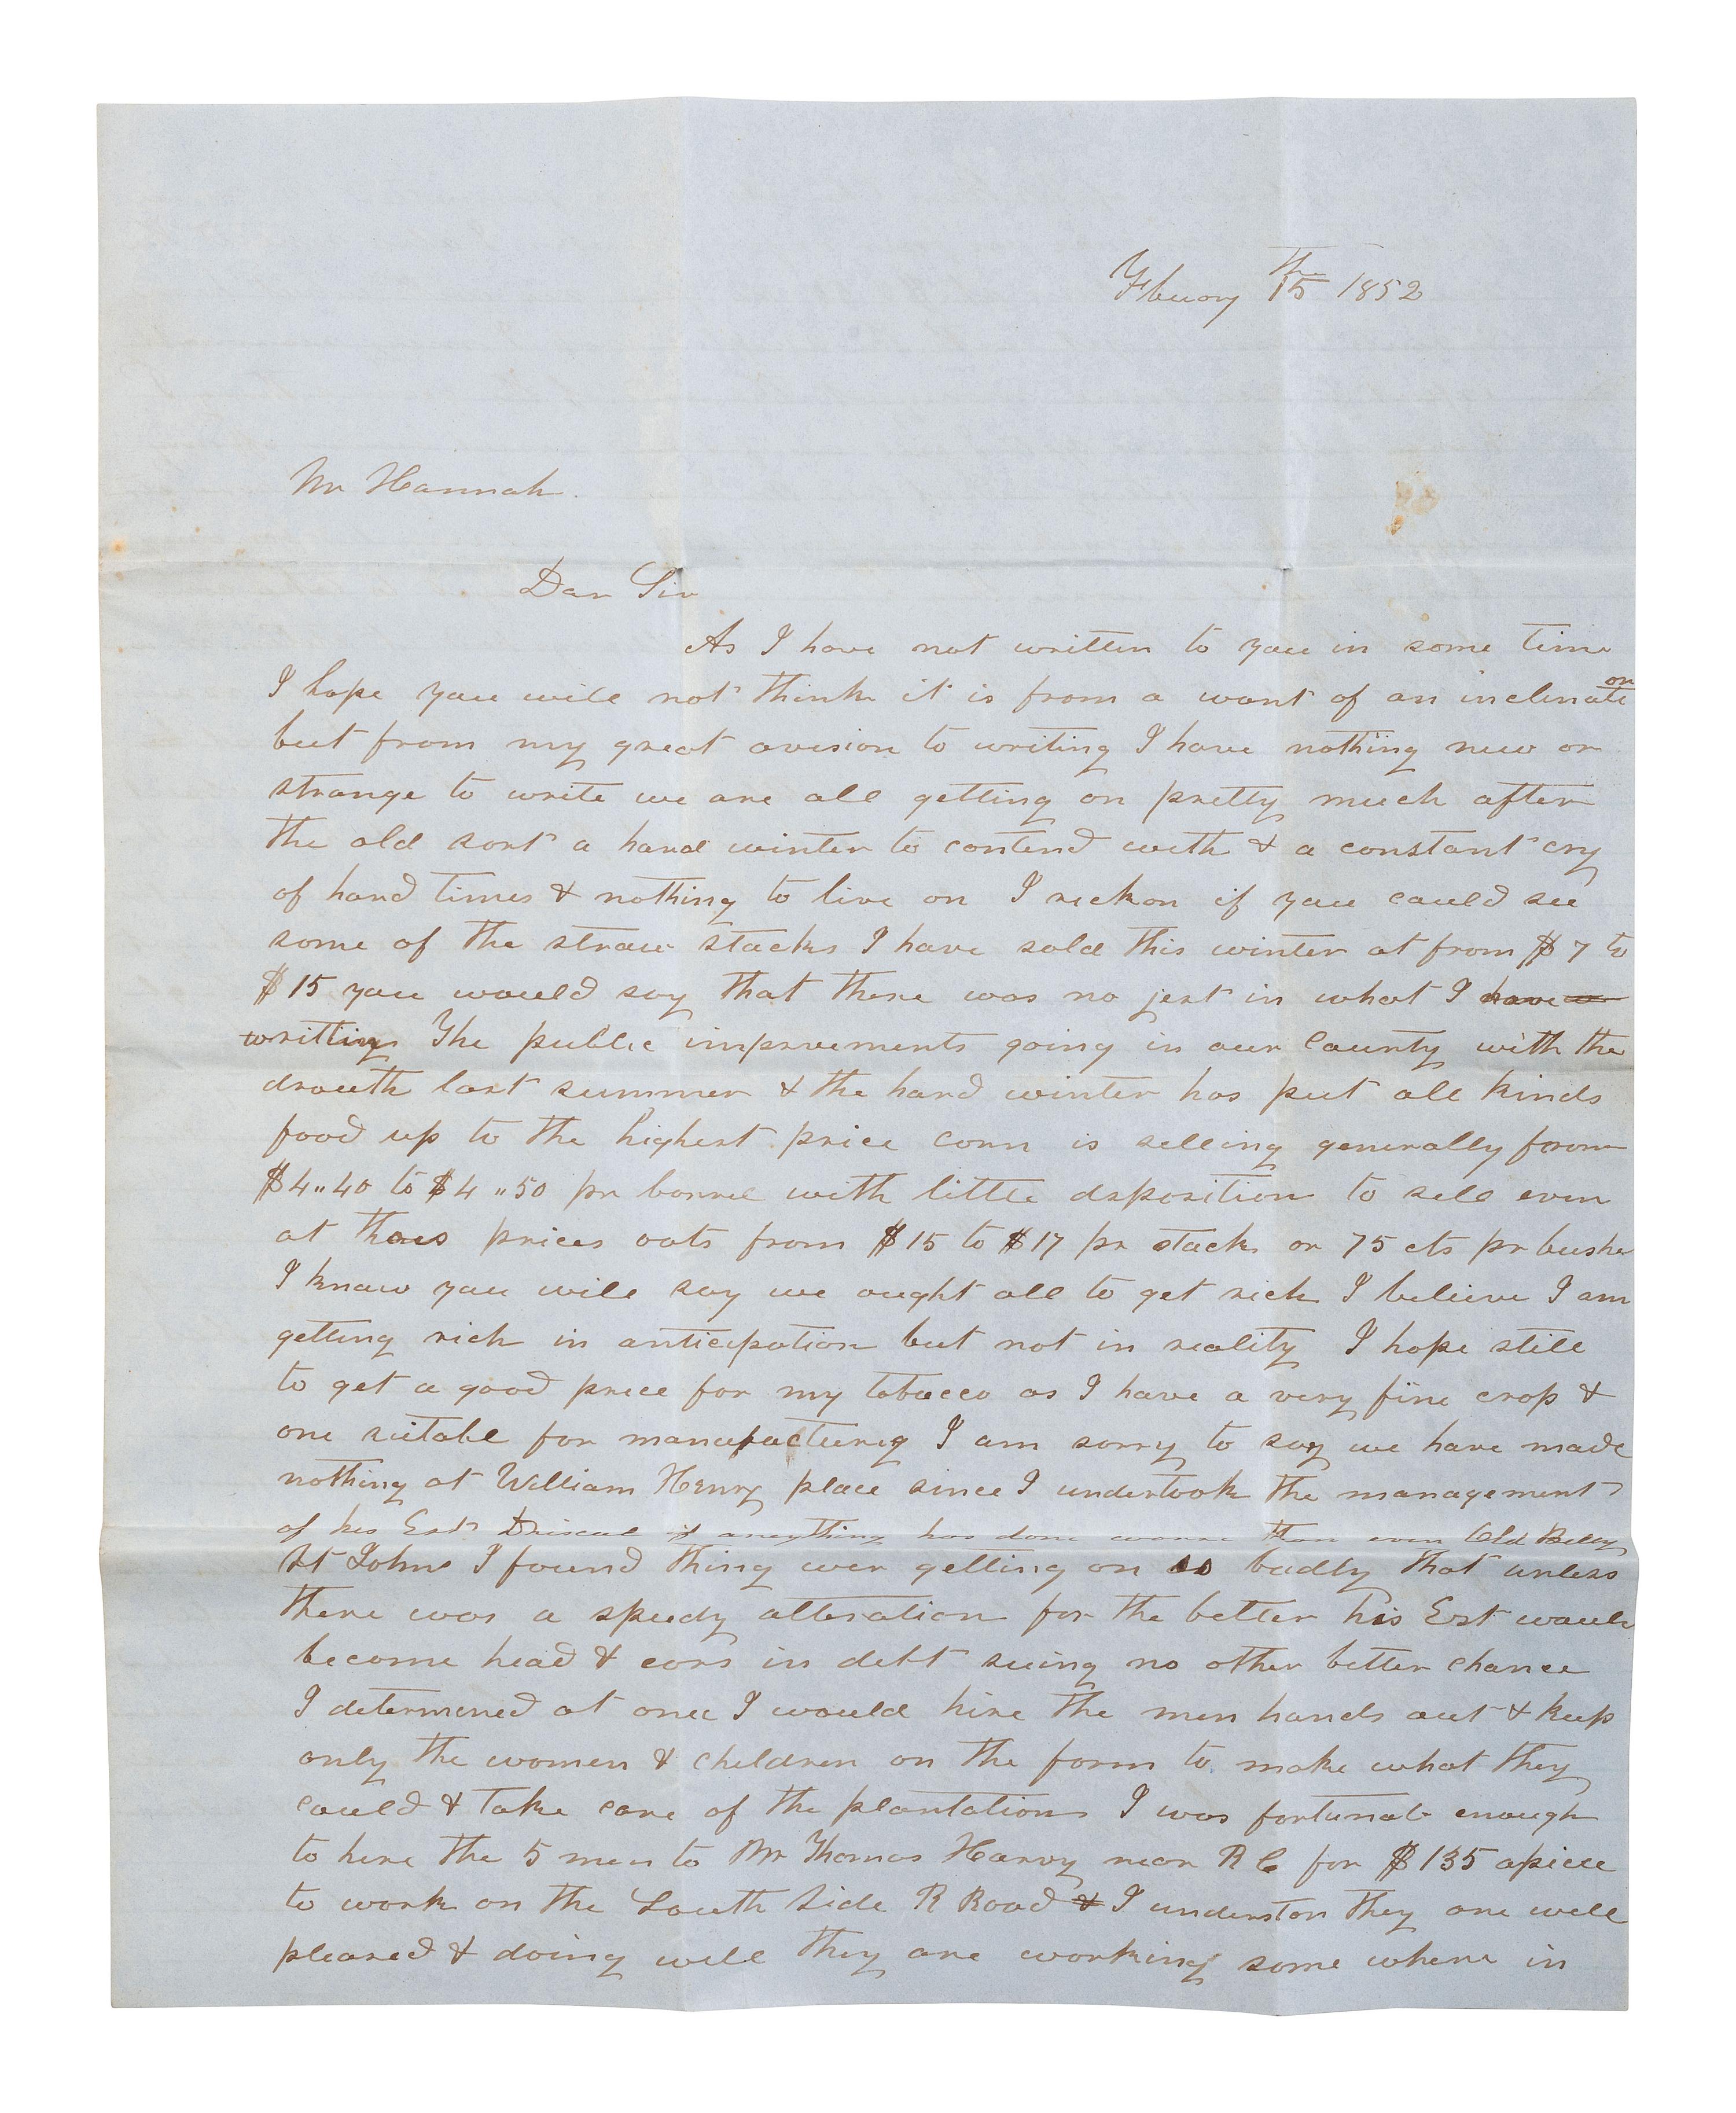 Fbuary 15th 1852
Mr Hannah.
Dar Sir
As I have not written to you in some time
I hope you will not think it is from a want of an inclination
but from my great avision to writing I have nothing new or
strange to write we are all getting on pretty much after
the old sort a hard winter to contend with & a constant cry
of hard times & nothing to live on I reckon if you could see
some of the straw stacks I have sold this winter at from $7 to
$15 you would say that there was no jest in what I have
writting The public imprvements going in our County with the
drouth last summer & the hard winter has put all kinds
food up to the highest price corn is selling generally from
$4"40 to $4"50 pr barrel with little dsposition to sell even
at thes prices oats from $15 to $17 pr stack or 75 cts pr bushe
I know you will say we ought all to get rich I believe I am
getting rich in anticipation but not in reality I hope still
to get a good price for my tobacco as I have a very fine crop &
one suitabl for manufacturig I am sorry to say we have made
nothing at William Henry place since I undertook the management
of his Est Driscal if anything has done worse than even Old Billy
St Johns I found thing wer getting on so badly that unless
there was a speedy alteration for the better his Est would
become head & ears in debt seeing no other better chance
I determened at once I would hire the men hands out & keep
only the women & children on the farm to make what they
could & take care of the plantations I was fortunate enough
to hire the 5 men to Mr Thomas Harvy near R C for $135 apiece
to work on the South Side R Road & I understan they are well
pleased & doing well they are working some where in